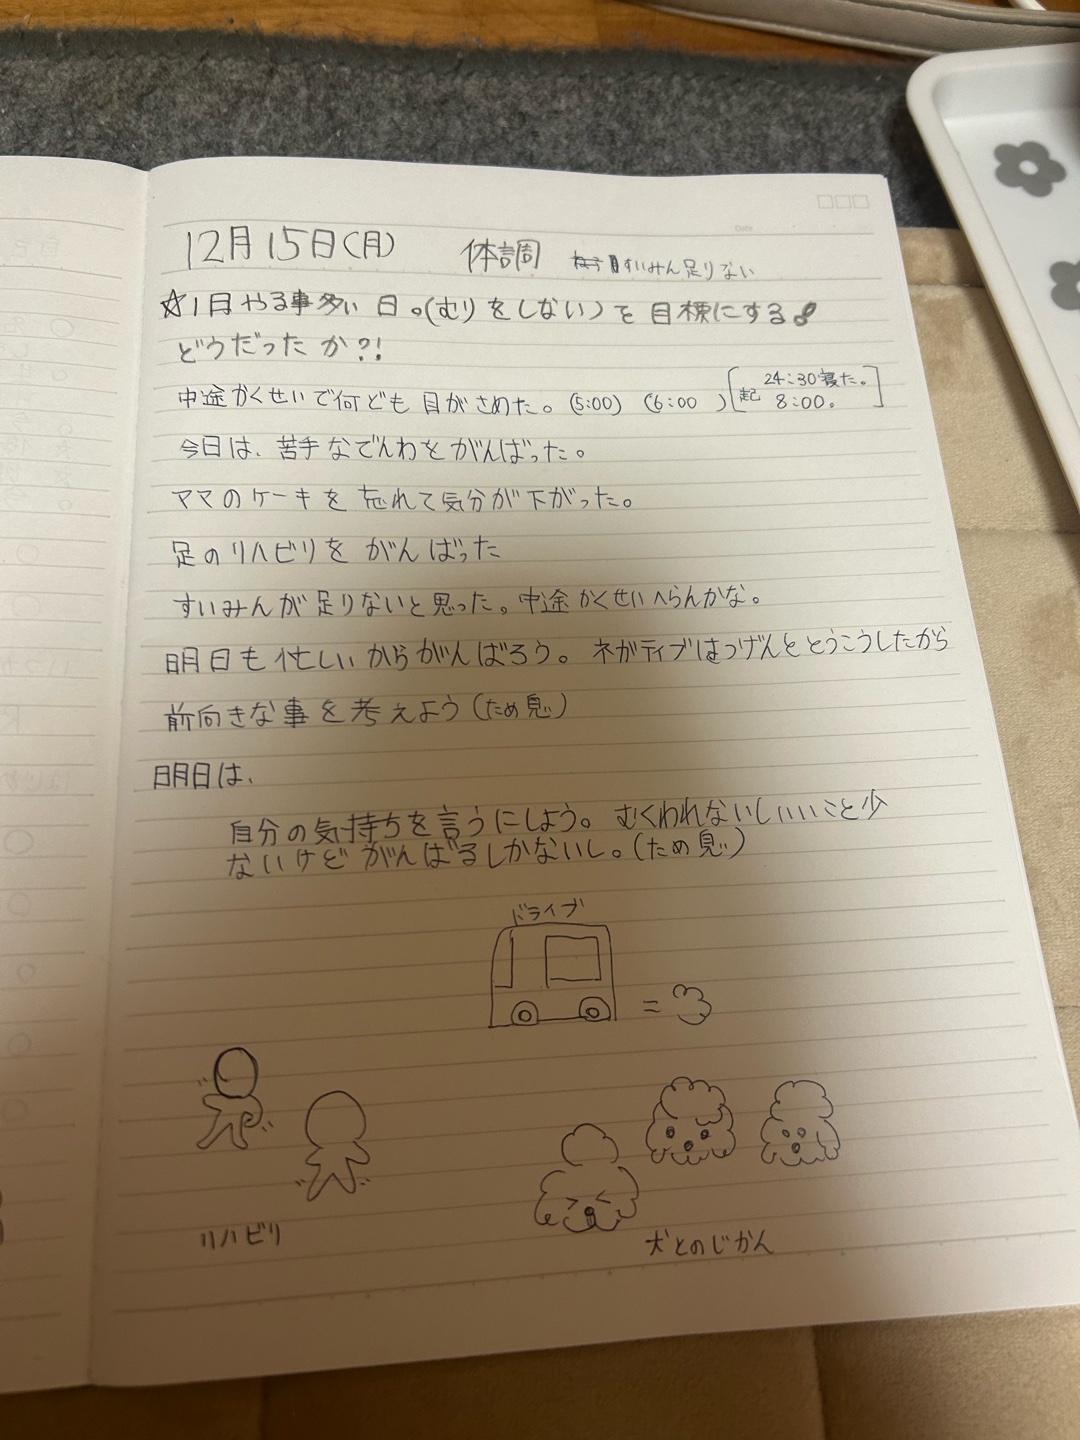 Date
12月15日(月) 体調 すいみん足りない
☆1日やる事多い日。(むりをしない)を目標にする
どうだったか?!
中途かくせいで何ども目がさめた。(5:00) (6:00 ) [24:30寝た。
起 8:00。]
今日は、苦手なでんわをがんばった。
ママのケーキを忘れて気分が下がった。
足のリハビリをがんばった
すいみんが足りないと思った。中途かくせいへらんかな。
明日も忙しいからがんばろう。ネガティブはつげんととうこうしたから
前向きな事を考えよう(ため息)
明日は、
自分の気持ちを言うにしよう。むくわれないしいいこと少
ないけどがんばるしかないし。(ため息)
ドライブ
リハビリ
犬とのじかん